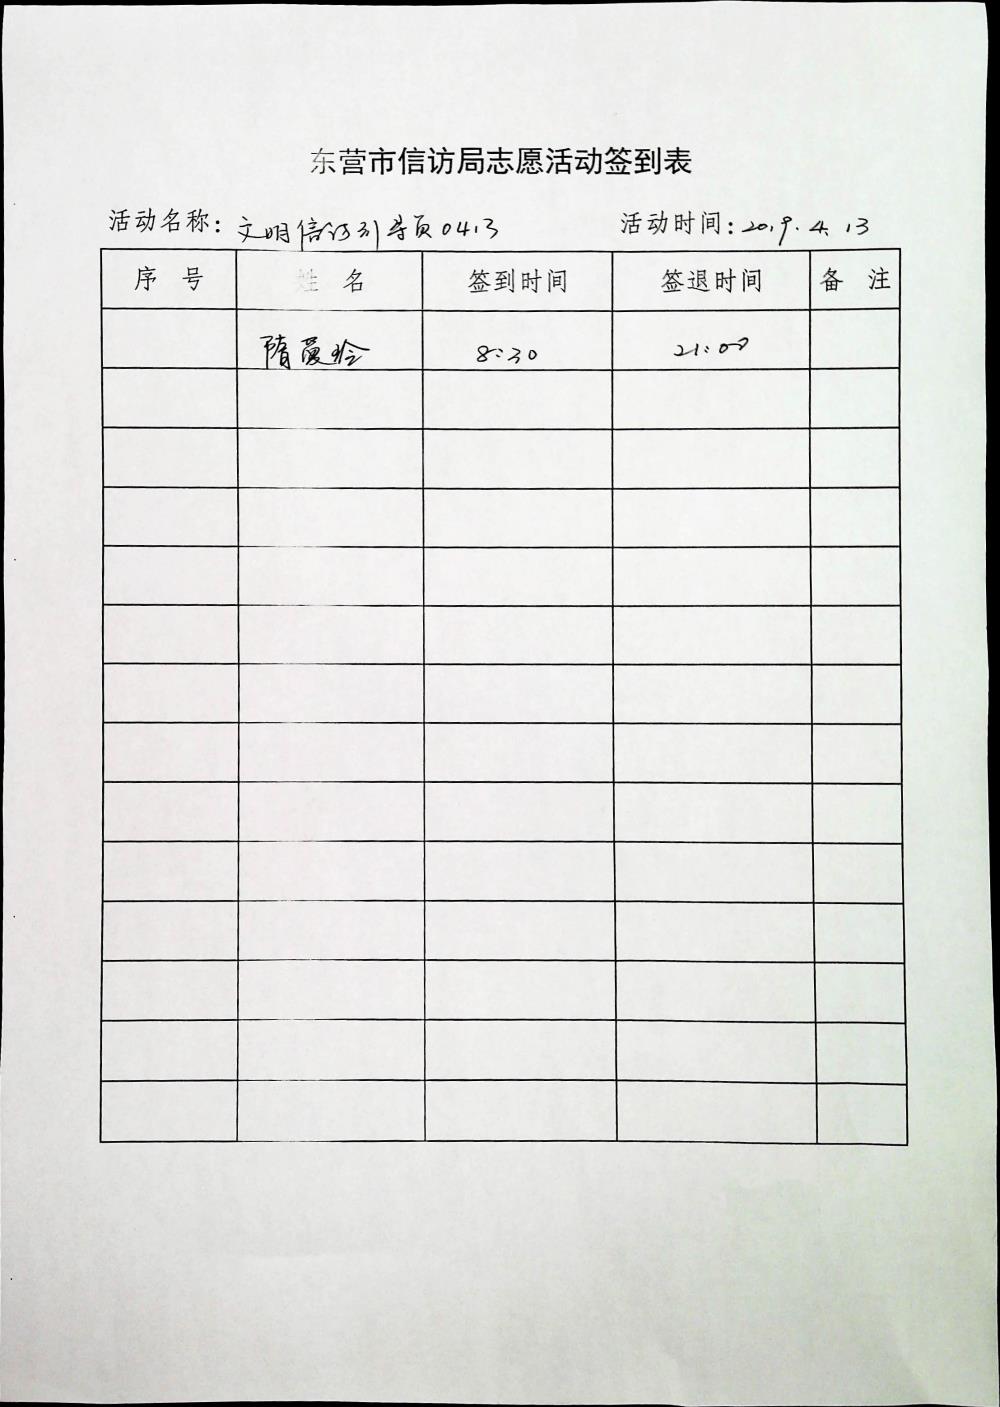 东营市信访局志愿活动签到表
活动名称：文明信访引导员0413 活动时间：2019.4.13
序 号 姓 名 签到时间 签退时间 备 注
隋 8:30 21:00